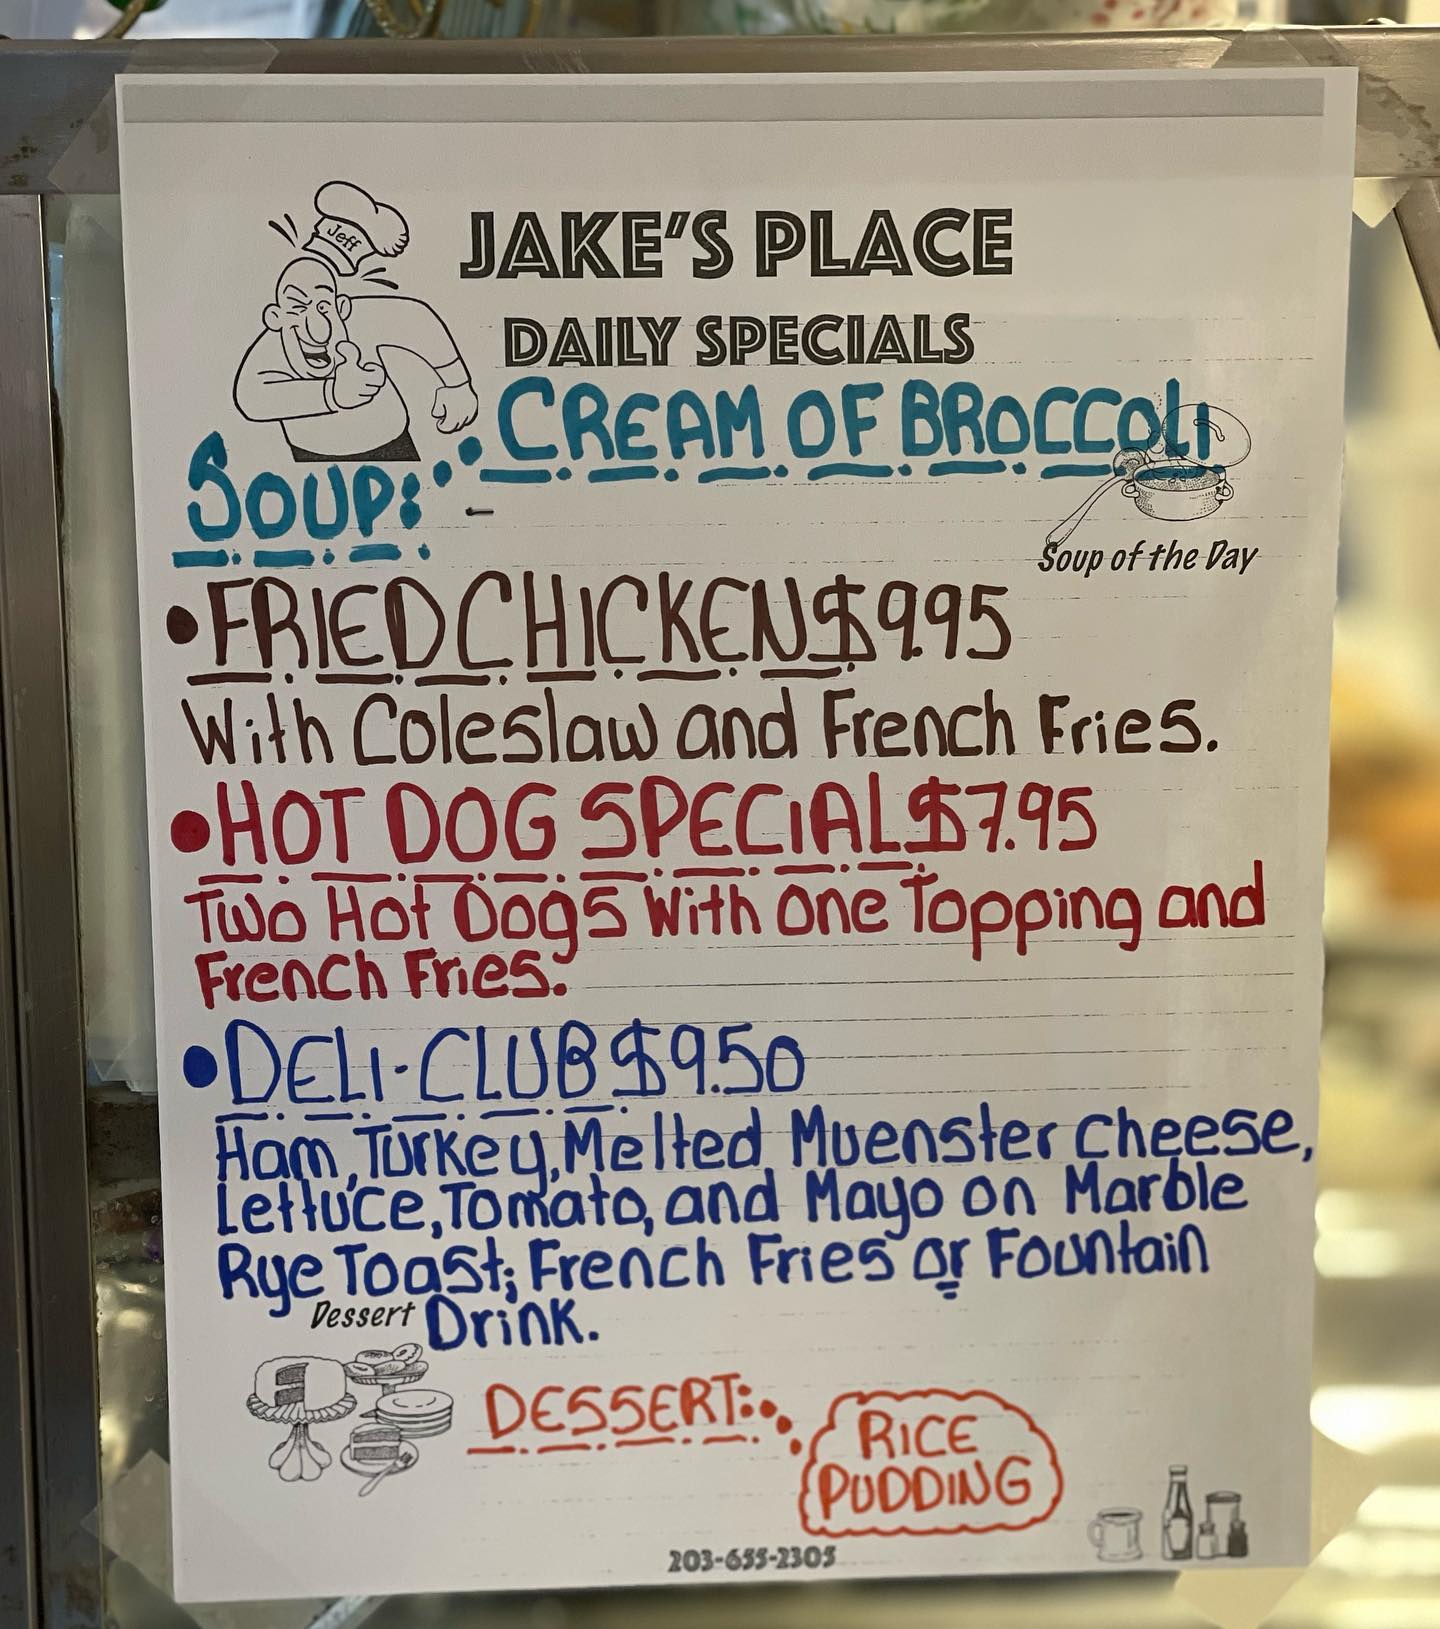 Jeff
JAKE'S PLACE
DAILY SPECIALS
CREAM OF BROCCOLI
SOUP:
Soup of the Day
•FRIED CHICKEN $9.95
With Coleslaw and French Fries.
•HOT DOG SPECIAL $7.95
Two Hot Dogs With One Topping and
French Fries.
•DELI-CLUB $9.50
Ham, Turkey, Melted Muenster Cheese,
Lettuce, Tomato, and Mayo on Marble
Rye Toast; French Fries or Fountain
Drink.
Dessert
DESSERT:
RICE
PUDDING
203-655-2305